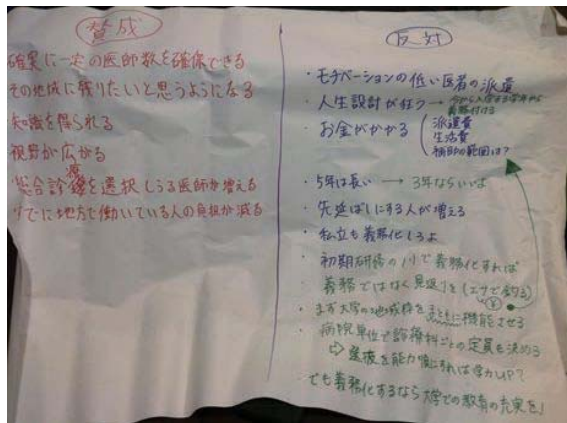 賛成
確実に一定の医師数を確保できる
その地域に残りたいと思うようになる
知識を得られる
視野が広がる
総合診療を選択しうる医師が増える
すでに地方で働いている人の負担が減る
反対
・モチベーションの低い医者の派遣
・人生設計が狂う → 今から入学する学年から
義務付ける
・お金がかかる
派遣費
生活費
補助の範囲は?
・5年は長い → 3年ならいいよ
・先延ばしにする人が増える
・私立も義務化しろよ
・初期研修の中で義務化すれば
・義務ではなく見返りを(エサで釣る)
¥
・まず大学の地域枠をまともに機能させる
・病院単位で診療科ごとの定員も決める
⇨ 選抜を能力順にすれば学力UP?
でも義務化するなら大学での教育の充実を」